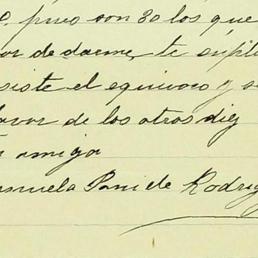 pues son 30 los que
or de darme, te supl
siste el equivoco y s
avor de los otros diez
amiga
anuela Pani de Rodrig